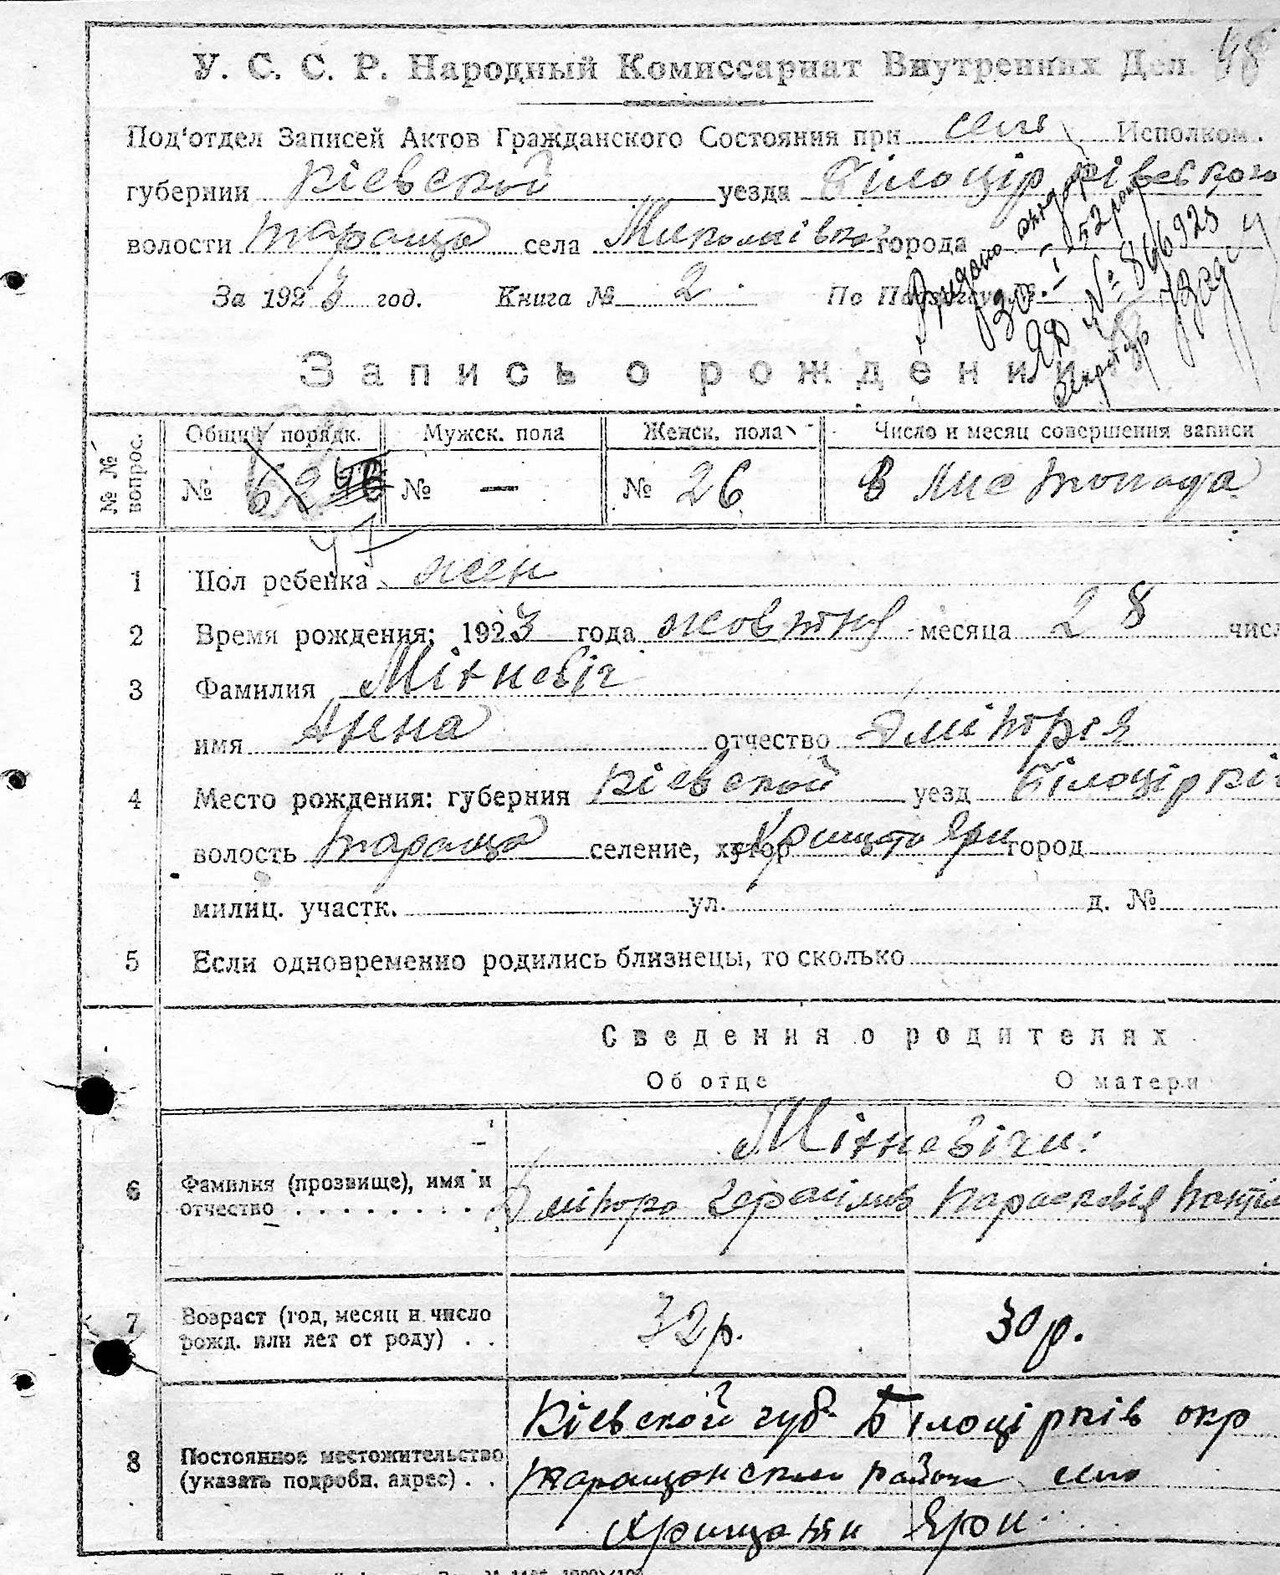 У. С. С. Р. Народный Комиссариат Внутренних Дел. 48
Под'отдел Записей Актов Гражданского Состояния при село Исполком.
губернии Кіевской уезда Білоцірківського
волости Тараща села Миколаївка города
За 1923 год. Книга № 2. По
Видано
30.I 52 року
ЯФ № 846925
Запись о рождении
№ № вопрос.
Общий порядк. Мужск. пола Женск. пола Число и месяц совершения записи
№ 62 46 № — № 26 8 Листопада
47
1 Пол ребенка жен
2 Время рождения: 1923 года жовтня месяца 28 числ
3 Фамилия Міхневіч
имя Анна отчество Дмітрія
4 Место рождения: губерния Кіевской уезд Білоціркі
волость Тараща селение, хутор Хрищаті Яри город
милиц. участк. ул. д. №
5 Если одновременно родились близнецы, то сколько
Сведения о родителях
Об отце О матери
Міхневічи:
6 Фамилия (прозвище), имя и
отчество Дмітро Герасімів Параскевія
7 Возраст (год, месяц и число
рожд. или лет от роду) 32р. 30р.
Кіевской губ. Білоцірків окр
8 Постоянное местожительство
(указать подробн. адрес) Таращанского района село
Хрищаті Яри.